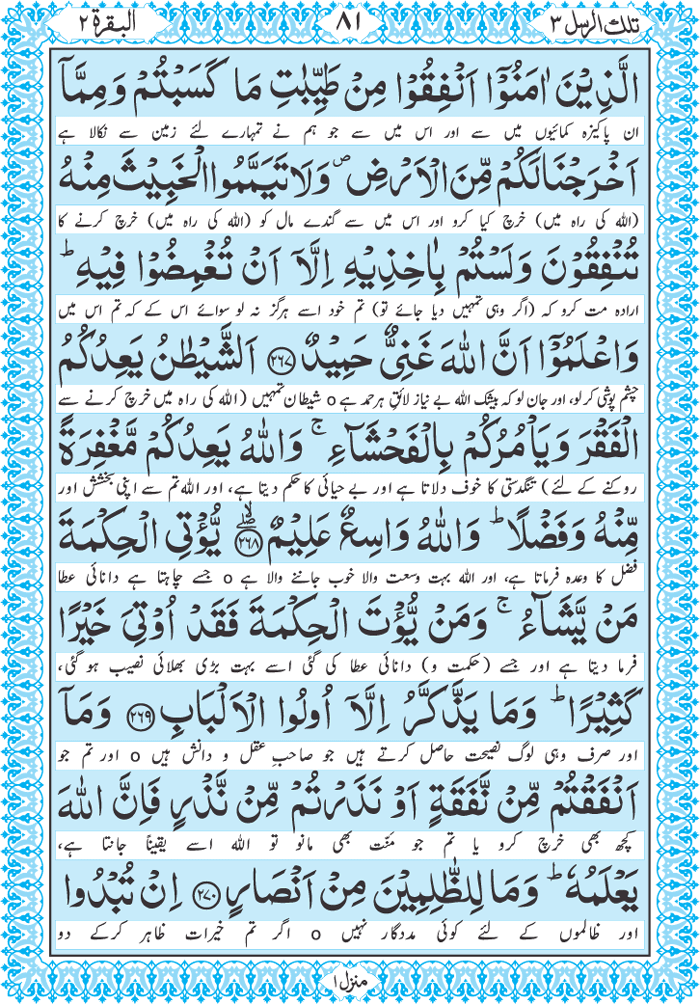 تلك الرسل ٣
٨١
البقرة ٢
الَّذِیْنَ اٰمَنُوْۤا اَنْفِقُوْا مِنْ طَیِّبٰتِ مَا كَسَبْتُمْ وَ مِمَّاۤ
ان پاکیزہ کمائیوں میں سے اور اس میں سے جو ہم نے تمہارے لئے زمین سے نکالا ہے
اَخْرَجْنَا لَكُمْ مِّنَ الْاَرْضِ ۪ وَ لَا تَیَمَّمُوا الْخَبِیْثَ مِنْهُ
(اللہ کی راہ میں) خرچ کیا کرو اور اس میں سے گندے مال کو (اللہ کی راہ میں) خرچ کرنے کا
تُنْفِقُوْنَ وَ لَسْتُمْ بِاٰخِذِیْهِ اِلَّاۤ اَنْ تُغْمِضُوْا فِیْهِ ؕ
ارادہ مت کرو کہ (اگر وہی تمہیں دیا جائے تو) تم خود اسے ہرگز نہ لو سوائے اس کے کہ تم اس میں
وَ اعْلَمُوْۤا اَنَّ اللّٰهَ غَنِیٌّ حَمِیْدٌ ﴿۲۶۷﴾ اَلشَّیْطٰنُ یَعِدُكُمُ
چشم پوشی کر لو، اور جان لو کہ بیشک اللہ بے نیاز لائقِ ہر حمد ہے o شیطان تمہیں (اللہ کی راہ میں خرچ کرنے سے
الْفَقْرَ وَ یَاْمُرُكُمْ بِالْفَحْشَآءِ ۚ وَ اللّٰهُ یَعِدُكُمْ مَّغْفِرَةً
روکنے کے لئے) تنگدستی کا خوف دلاتا ہے اور بے حیائی کا حکم دیتا ہے، اور اللہ تم سے اپنی بخشش اور
مِّنْهُ وَ فَضْلًا ؕ وَ اللّٰهُ وَاسِعٌ عَلِیْمٌ ﴿۲۶۸﴾ۖۙ یُّؤْتِی الْحِكْمَةَ
فضل کا وعدہ فرماتا ہے، اور اللہ بہت وسعت والا خوب جاننے والا ہے o جسے چاہتا ہے دانائی عطا
مَنْ یَّشَآءُ ۚ وَ مَنْ یُّؤْتَ الْحِكْمَةَ فَقَدْ اُوْتِیَ خَیْرًا
فرما دیتا ہے اور جسے (حکمت و) دانائی عطا کی گئی اسے بہت بڑی بھلائی نصیب ہو گئی،
كَثِیْرًا ؕ وَ مَا یَذَّكَّرُ اِلَّاۤ اُولُوا الْاَلْبَابِ ﴿۲۶۹﴾ وَ مَاۤ
اور صرف وہی لوگ نصیحت حاصل کرتے ہیں جو صاحبِ عقل و دانش ہیں o اور تم جو
اَنْفَقْتُمْ مِّنْ نَّفَقَةٍ اَوْ نَذَرْتُمْ مِّنْ نَّذْرٍ فَاِنَّ اللّٰهَ
کچھ بھی خرچ کرو یا تم جو مَنّت بھی مانو تو اللہ اسے یقیناً جانتا ہے،
یَعْلَمُهٗ ؕ وَ مَا لِلظّٰلِمِیْنَ مِنْ اَنْصَارٍ ﴿۲۷۰﴾ اِنْ تُبْدُوا
اور ظالموں کے لئے کوئی مددگار نہیں o اگر تم خیرات ظاہر کر کے دو
منزل ١